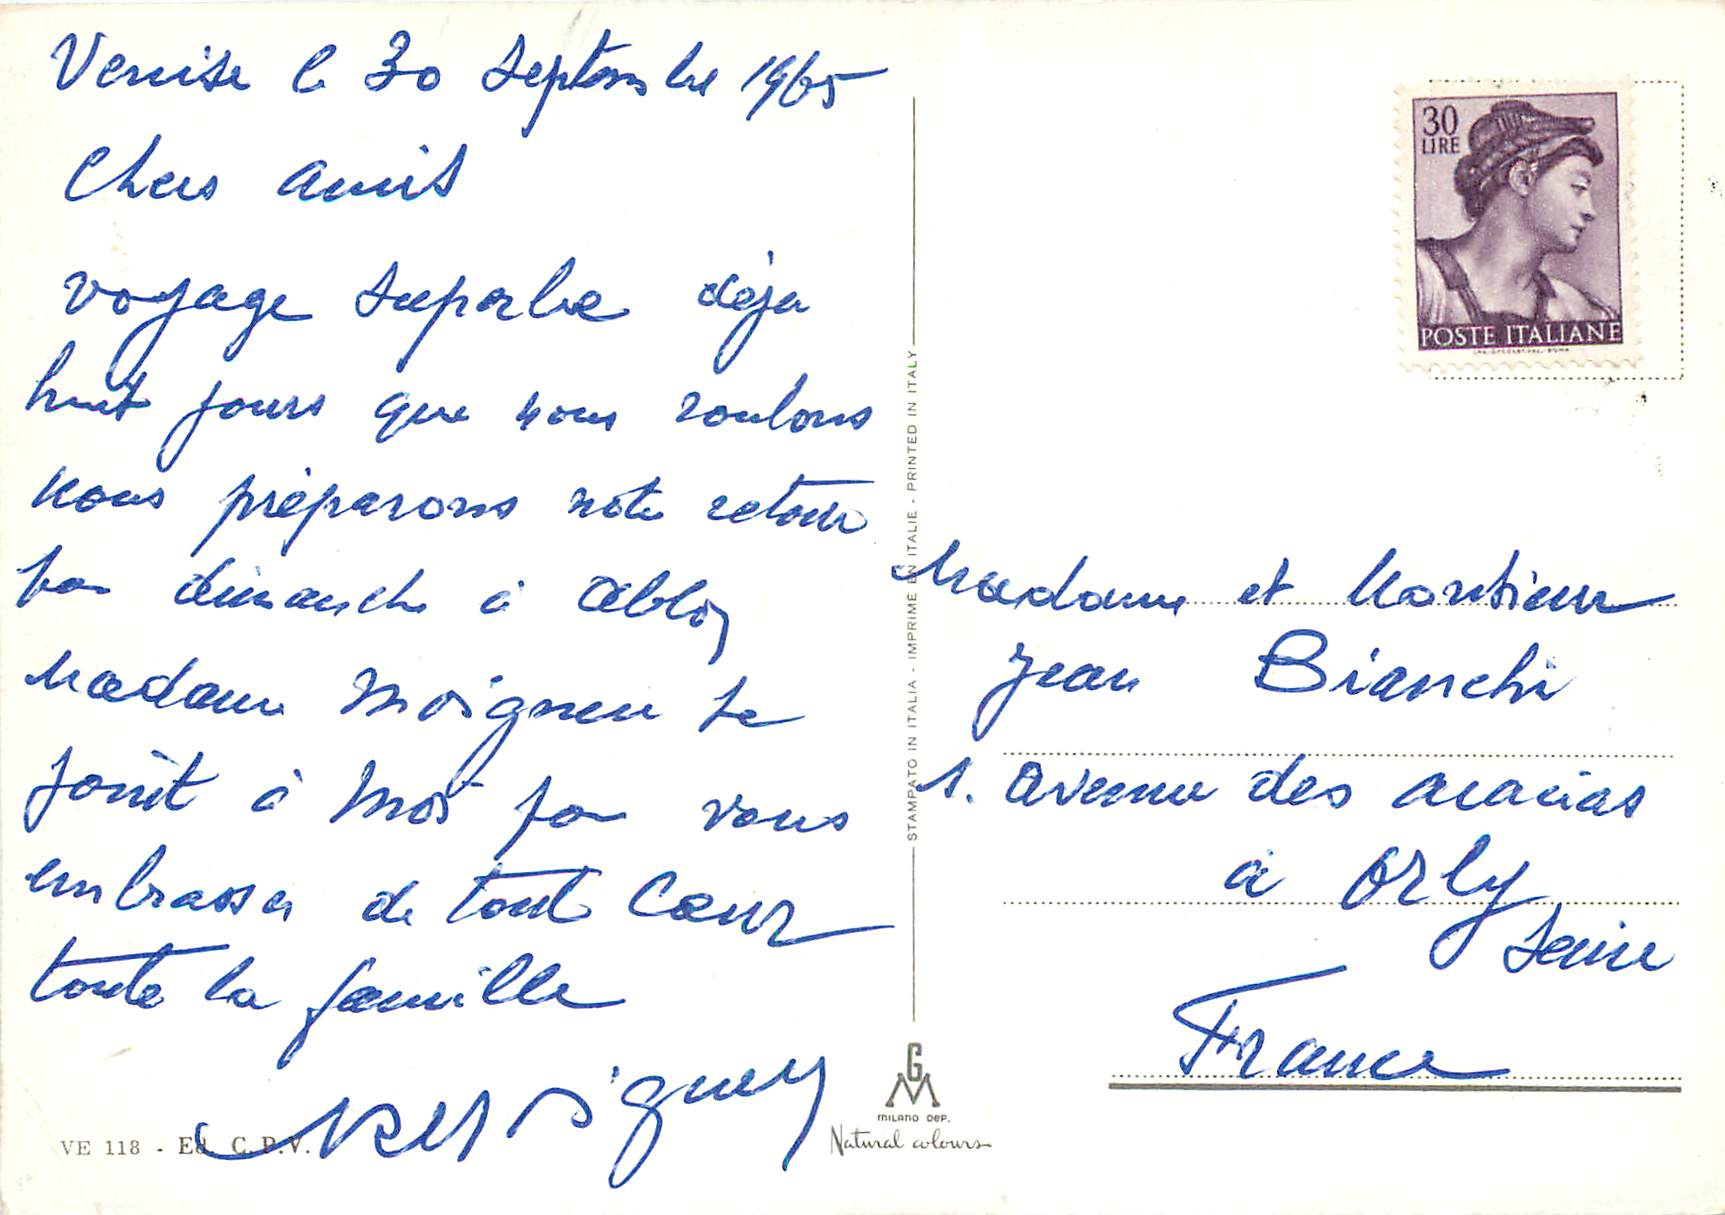 Venise le 30 septembre 1965
Chers amis
voyage superbe déja
huit jours que nous roulons
nous préparons notre retour
pour dimanche à Ablon
Madame Moigneu se
joint à moi pour vous
embrasser de tout Cœur
toute la famille
VE 118 - Ed. C.P.V.
30
LIRE
POSTE ITALIANE
STAMPATO IN ITALIA - IMPRIME EN ITALIE - PRINTED IN ITALY
Madame et Monsieur
Jean Bianchi
1. avenue des acacias
à Orly
Seine
France
GM
MILANO DEP.
Natural colours